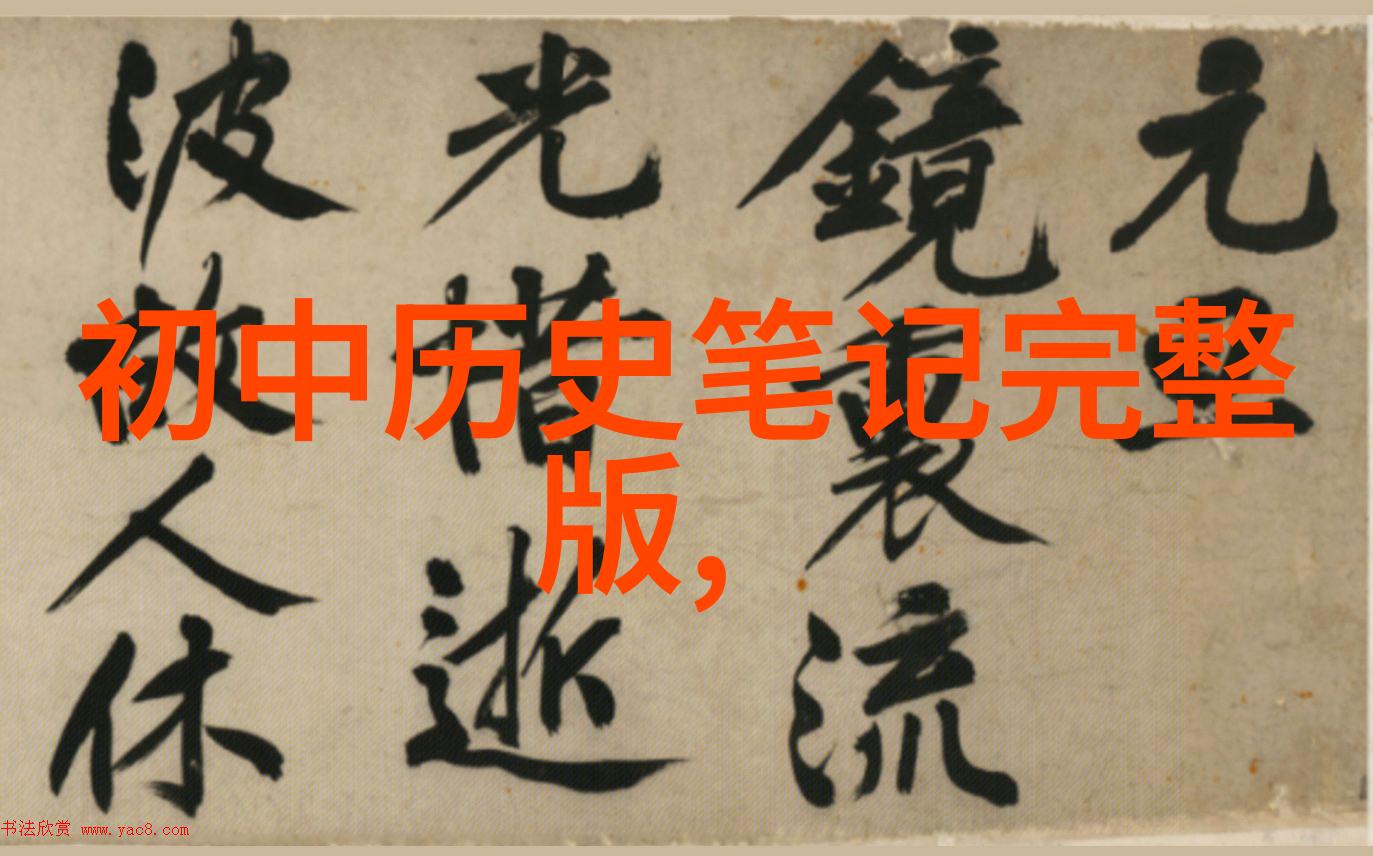 元旦
鏡裏流
光惜逝
波故人休
初中历史笔记完整
版,
书法欣赏 www.yac8.com